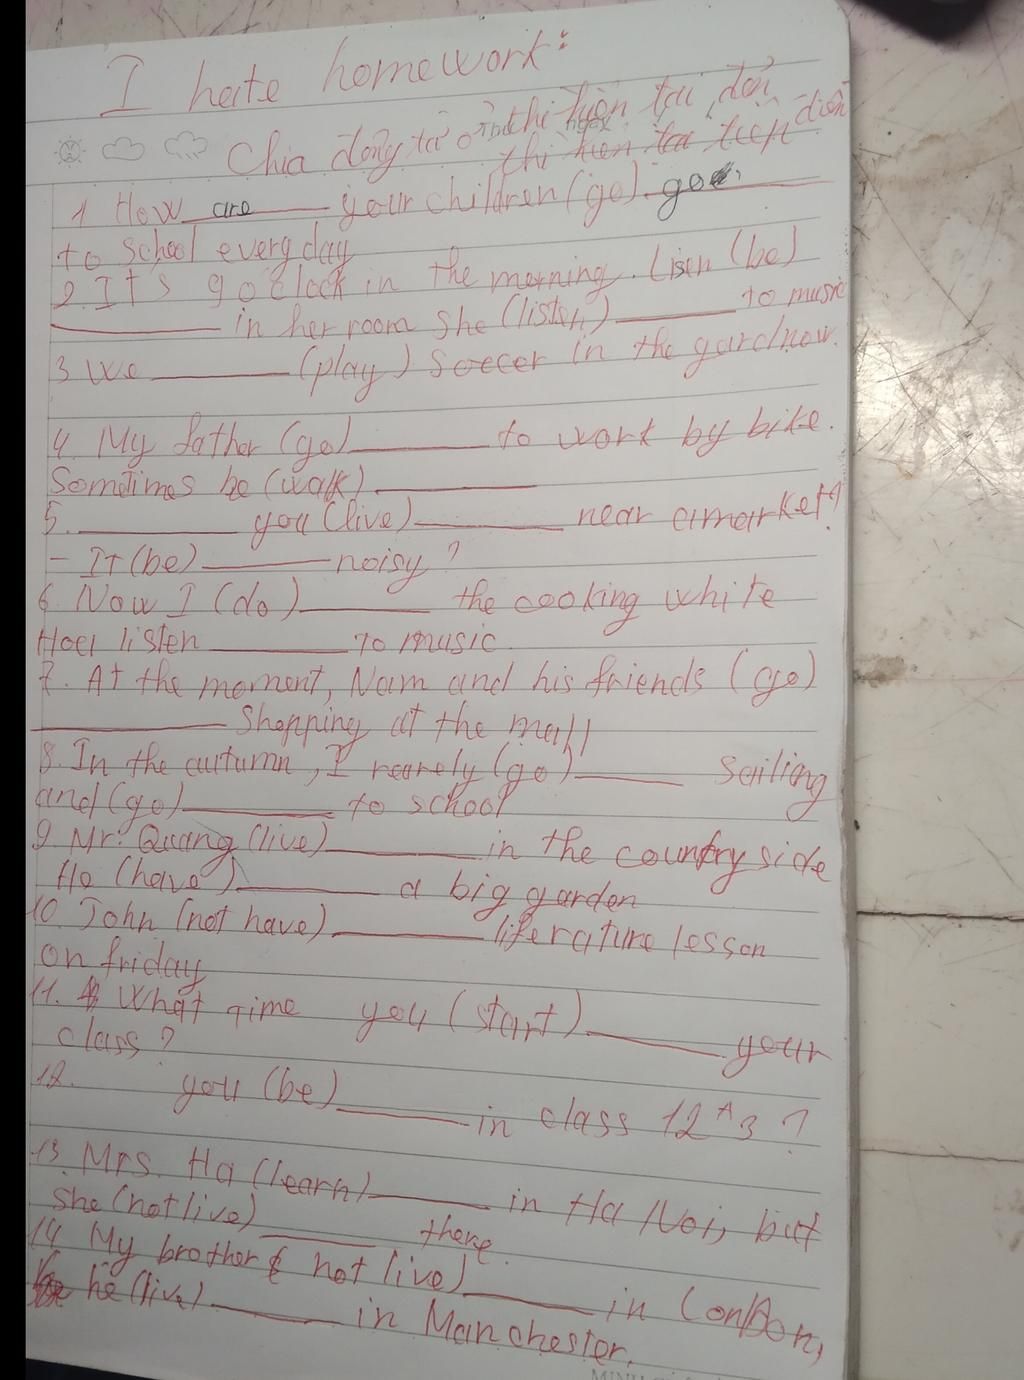 I hate homework:
Chia động từ ở thì hiện tại đơn
thì hiện tại tiếp diễn
1 How are your children (go). go
to school every day
2. It's 9 o'clock in the morning. Lisen (be)
in her room she (listen) to music
3 We (play) Soccer in the gard now.
4. My father (go) to work by bike.
Sometimes he (walk)
5. you (live) near a market?
- It (be) noisy?
6. Now I (do) the cooking white
Hoa listen to music
7. At the moment, Nam and his friends (go)
Shopping at the mall
8. In the autumn, I rarely (go) sailing
and (go) to school
9. Mr. Quang (live) in the countryside
He (have) a big garden
10. John (not have) literature lesson
on friday
11. What Time you (start) your
class?
12. you (be) in class 12A3?
13. Mrs. Ha (learn) in Ha Noi, but
she (not live) there.
14. My brother not live) in London,
he (live) in Manchester.